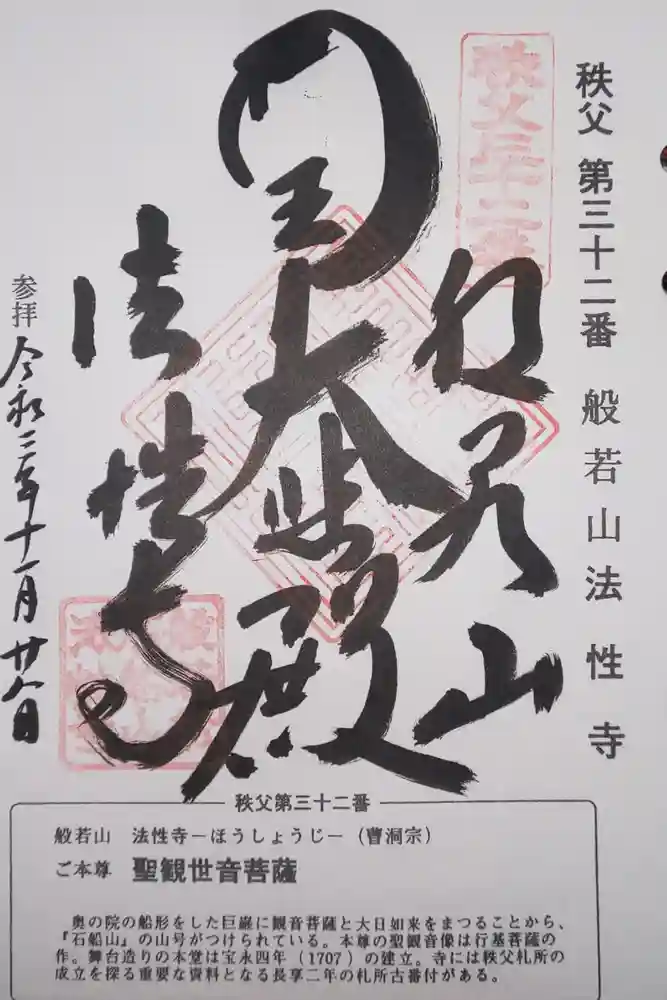 秩父 第三十二番 般若山法性寺
秩父三十二番
般若山
圓
大悲殿
法性寺
参拝 令和三年十一月廿八日
秩父第三十二番
般若山 法性寺－ほうしょうじ－(曹洞宗)
ご本尊 聖観世音菩薩
奥の院の船形をした巨巌に観音菩薩と大日如来をまつることから、
『石船山』の山号がつけられている。本尊の聖観音像は行基菩薩の
作。舞台造りの本堂は宝永四年(1707)の建立。寺には秩父札所の
成立を探る重要な資料となる長享二年の札所古番付がある。